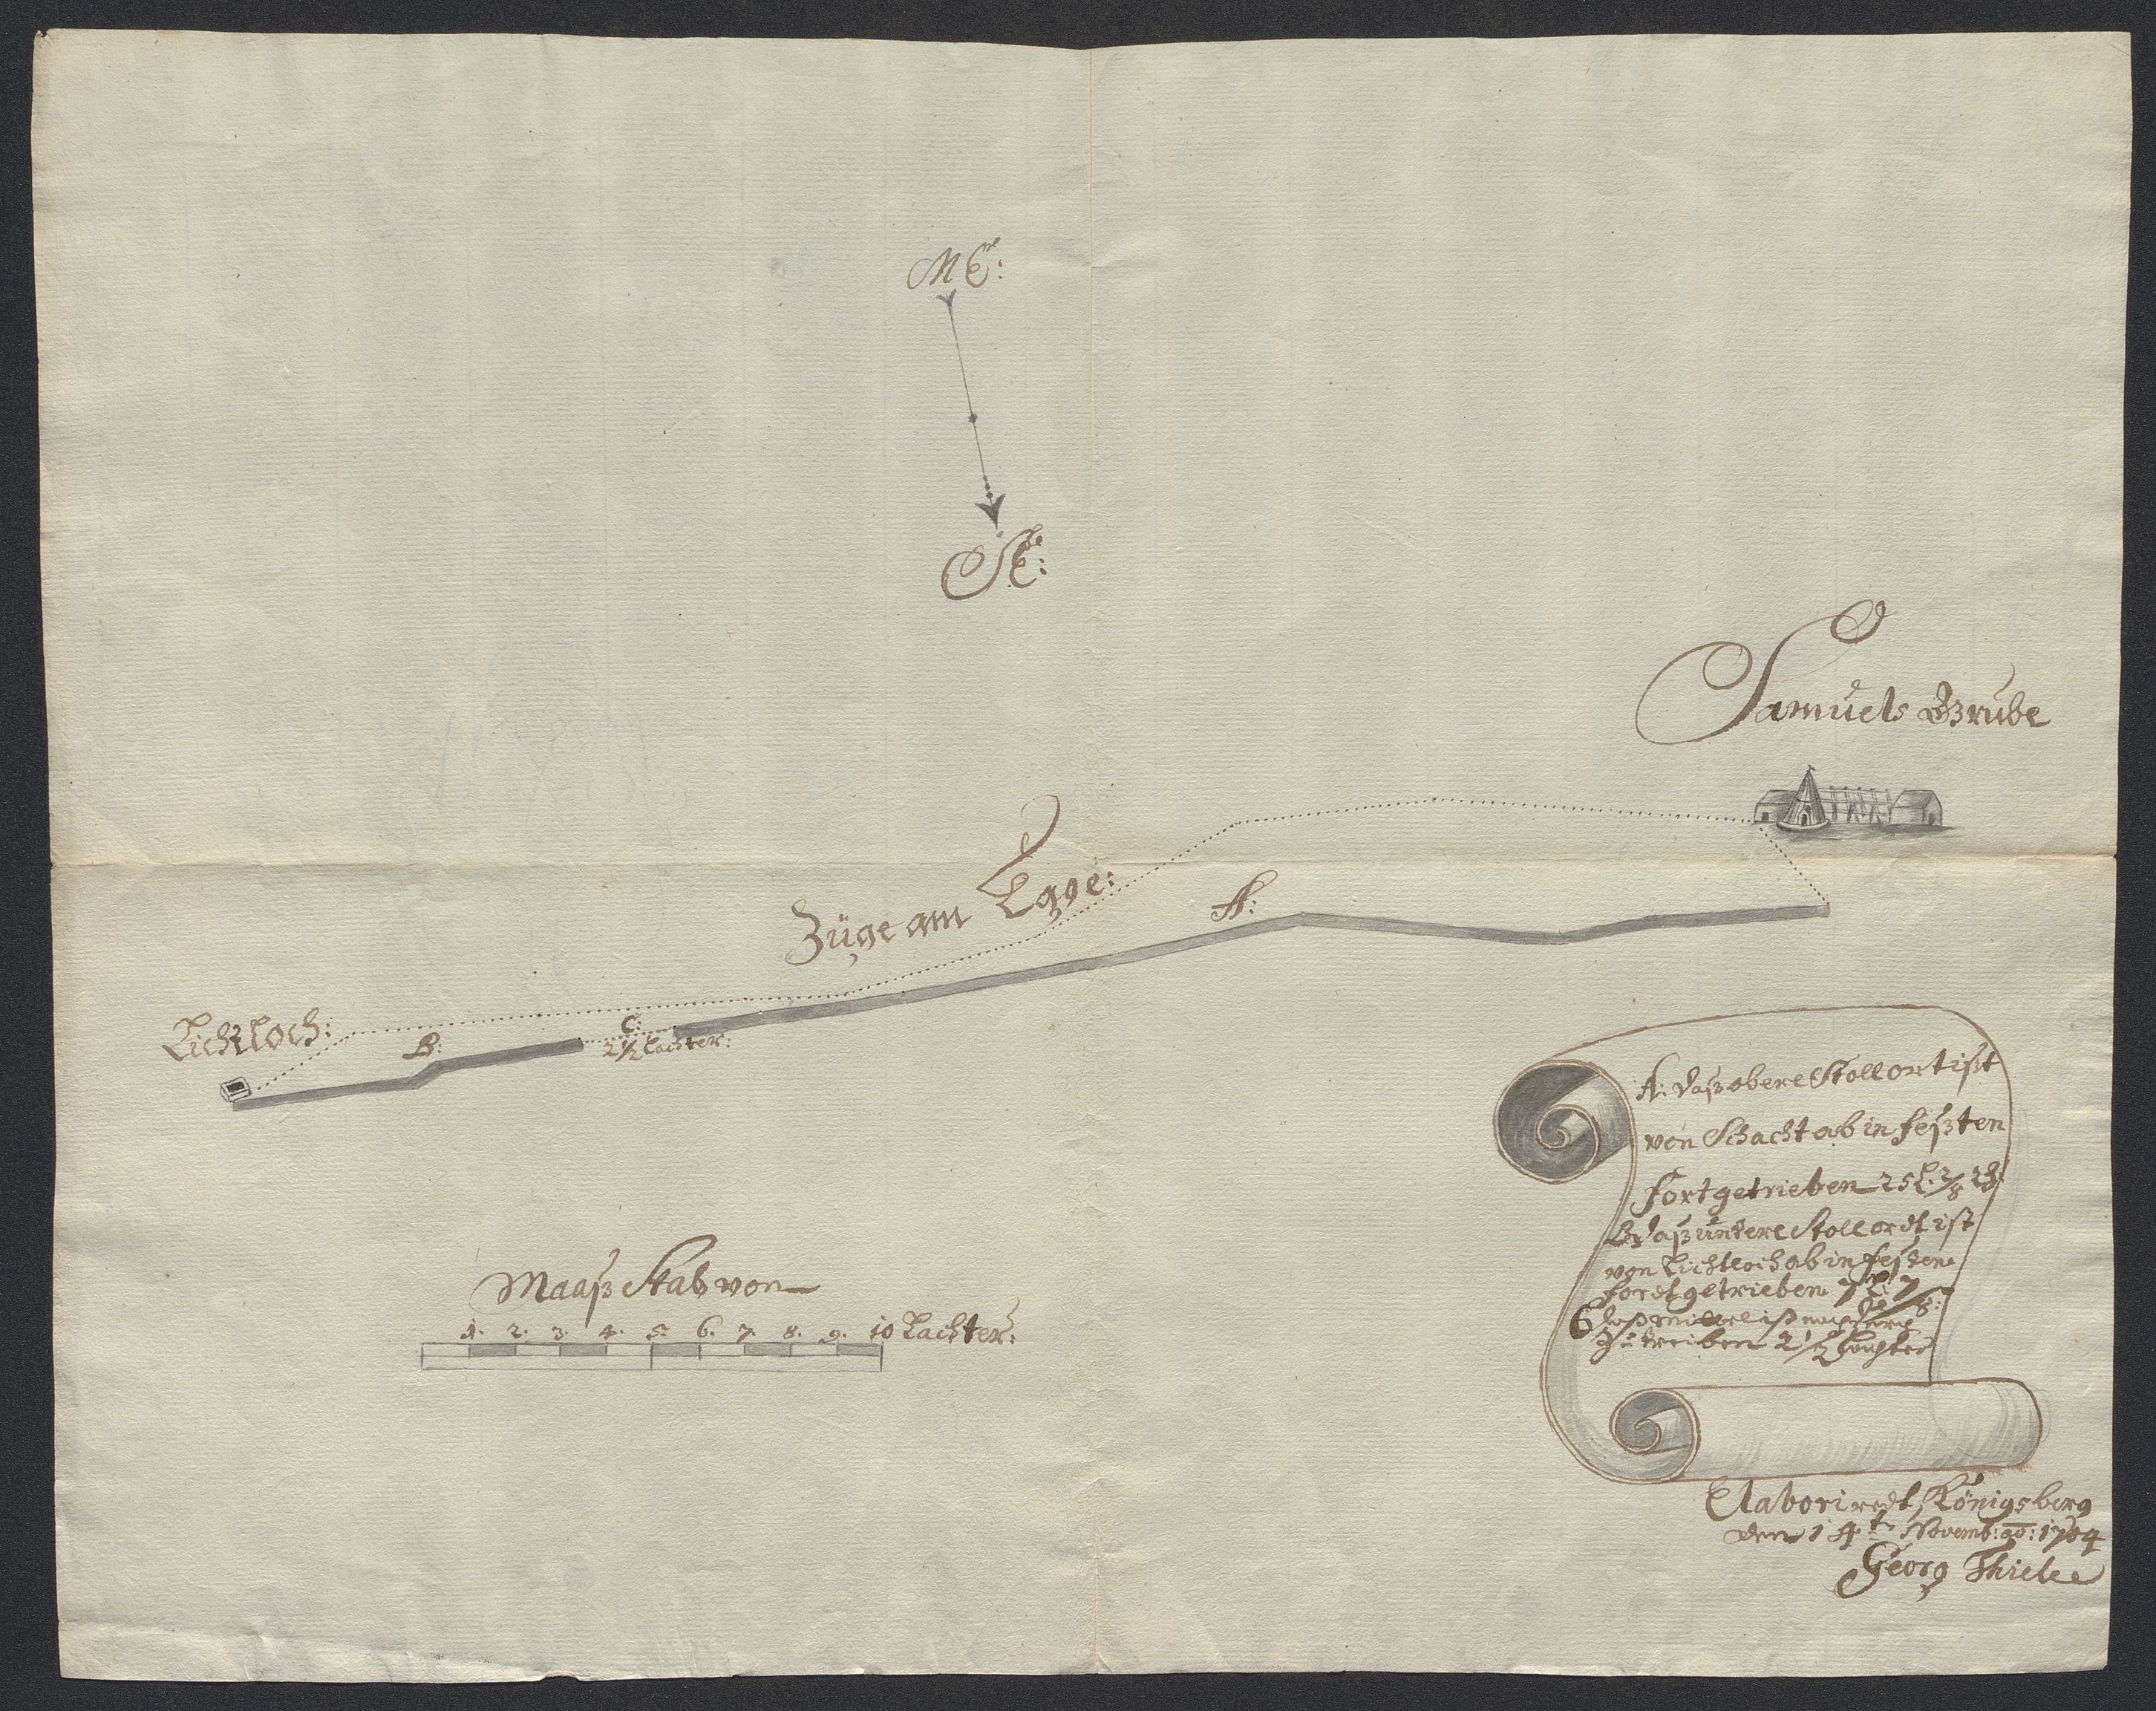 ME:
SE:
Samuels Grube
Züge am Tage:
A:
Lichtloch:
B:
C:
2 1/2 Lachter:
A: daß obere Stollort ist
von Schacht ab in feßten
fortgetrieben 25 L: 3/8
B: daß untere Stollordt ist
von Lichtloch ab in feßten
fordtgetrieben 7 L: 7/8:
C daß mittel ist noch
zu treiben 2 1/2 Lachter
Maaß Stab von
1. 2. 3. 4. 5. 6. 7. 8. 9. 10 Lachter:
Elaboriredt, Königsberg
den 14t Novemb: ao: 1704
Georg Thiele